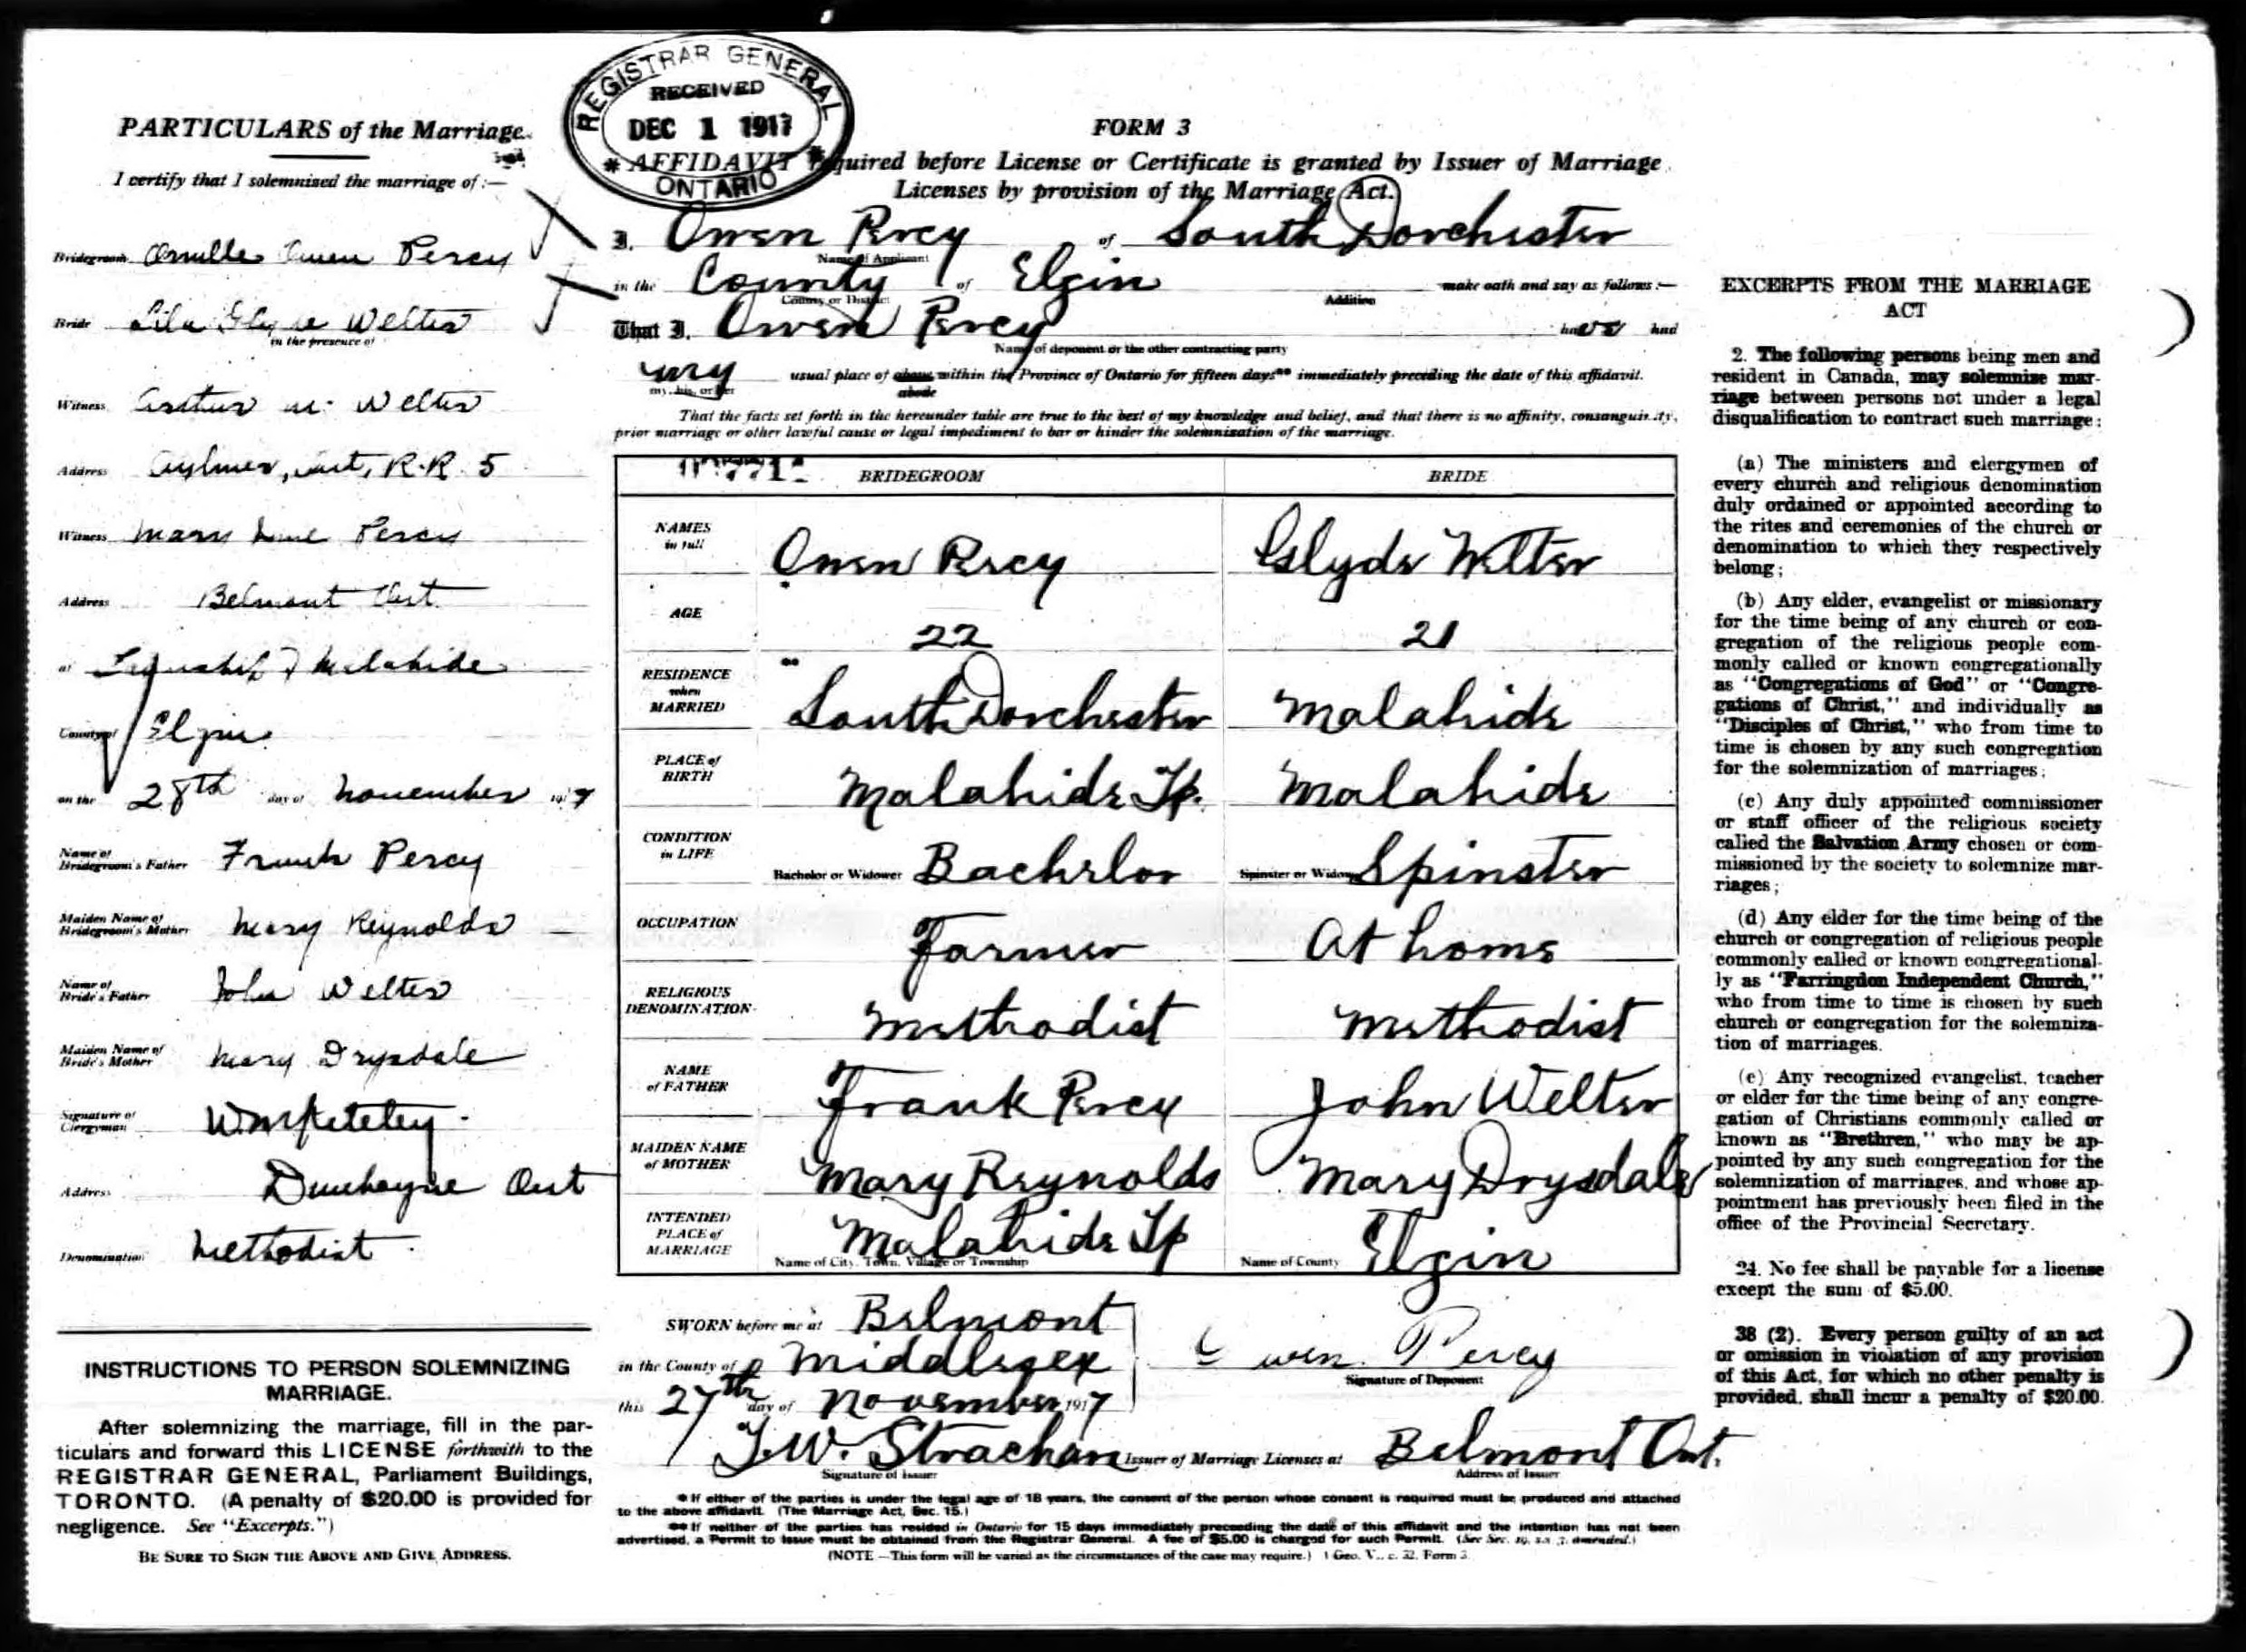 REGISTRAR GENERAL
RECEIVED
DEC 1 1917
ONTARIO
PARTICULARS of the Marriage.
I certify that I solemnized the marriage of :—
Bridegroom Owen Percy
Bride Lila Welter
in the presence of
Witness Arthur M. Welter
Address Aylmer, Ont, R.R. 5
Witness Mary Percy
Address Belmont Ont.
at Township of Malahide
County of Elgin
on the 28th day of November 1917
Name of Bridegroom's Father Frank Percy
Maiden Name of Bridegroom's Mother Mary Reynolds
Name of Bride's Father John Welter
Maiden Name of Bride's Mother Mary Drysdale
Signature of Clergyman
Address Ont
Denomination Methodist
INSTRUCTIONS TO PERSON SOLEMNIZING
MARRIAGE.
After solemnizing the marriage, fill in the par-
ticulars and forward this LICENSE forthwith to the
REGISTRAR GENERAL, Parliament Buildings,
TORONTO. (A penalty of $20.00 is provided for
negligence. See "Excerpts.")
BE SURE TO SIGN THE ABOVE AND GIVE ADDRESS.
FORM 3
AFFIDAVIT required before License or Certificate is granted by Issuer of Marriage
Licenses by provision of the Marriage Act.
I, Owen Percy of South Dorchester
Name of Applicant
in the County of Elgin make oath and say as follows :—
County or District Addition
That I, Owen Percy have had
Name of deponent or the other contracting party
my usual place of abode within the Province of Ontario for fifteen days** immediately preceding the date of this affidavit.
my, his, or her abode
That the facts set forth in the hereunder table are true to the best of my knowledge and belief, and that there is no affinity, consanguinity,
prior marriage or other lawful cause or legal impediment to bar or hinder the solemnization of the marriage.
BRIDEGROOM BRIDE
NAMES in full Owen Percy Glyde Welter
AGE 22 21
RESIDENCE when MARRIED South Dorchester Malahide
PLACE of BIRTH Malahide Tp. Malahide
CONDITION in LIFE Bachelor or Widower Bachelor Spinster or Widow Spinster
OCCUPATION Farmer At home
RELIGIOUS DENOMINATION Methodist Methodist
NAME of FATHER Frank Percy John Welter
MAIDEN NAME of MOTHER Mary Reynolds Mary Drysdale
INTENDED PLACE of MARRIAGE Malahide Tp Elgin
Name of City, Town, Village or Township Name of County
SWORN before me at Belmont
in the County of Middlesex Owen Percy
Signature of Deponent
this 27th day of November 1917
T.W. Strachan Issuer of Marriage Licenses at Belmont Ont.
Signature of Issuer Address of Issuer
* If either of the parties is under the legal age of 18 years, the consent of the person whose consent is required must be produced and attached
to the above affidavit. (The Marriage Act, Sec. 15.)
** If neither of the parties has resided in Ontario for 15 days immediately preceding the date of this affidavit and the intention has not been
advertised, a Permit to issue must be obtained from the Registrar General. A fee of $5.00 is charged for such Permit. (See Sec. 19, amended.)
(NOTE—This form will be varied as the circumstances of the case may require.) 1 Geo. V., c. 32, Form 3.
EXCERPTS FROM THE MARRIAGE
ACT
2. The following persons being men and
resident in Canada, may solemnize mar-
riage between persons not under a legal
disqualification to contract such marriage:
(a) The ministers and clergymen of
every church and religious denomination
duly ordained or appointed according to
the rites and ceremonies of the church or
denomination to which they respectively
belong;
(b) Any elder, evangelist or missionary
for the time being of any church or con-
gregation of the religious people com-
monly called or known congregationally
as "Congregations of God" or "Congre-
gations of Christ," and individually as
"Disciples of Christ," who from time to
time is chosen by any such congregation
for the solemnization of marriages;
(c) Any duly appointed commissioner
or staff officer of the religious society
called the Salvation Army chosen or com-
missioned by the society to solemnize mar-
riages;
(d) Any elder for the time being of the
church or congregation of religious people
commonly called or known congregational-
ly as "Farringdon Independent Church,"
who from time to time is chosen by such
church or congregation for the solemniza-
tion of marriages.
(e) Any recognized evangelist, teacher
or elder for the time being of any congre-
gation of Christians commonly called or
known as "Brethren," who may be ap-
pointed by any such congregation for the
solemnization of marriages, and whose ap-
pointment has previously been filed in the
office of the Provincial Secretary.
24. No fee shall be payable for a license
except the sum of $5.00.
38 (2). Every person guilty of an act
or omission in violation of any provision
of this Act, for which no other penalty is
provided, shall incur a penalty of $20.00.